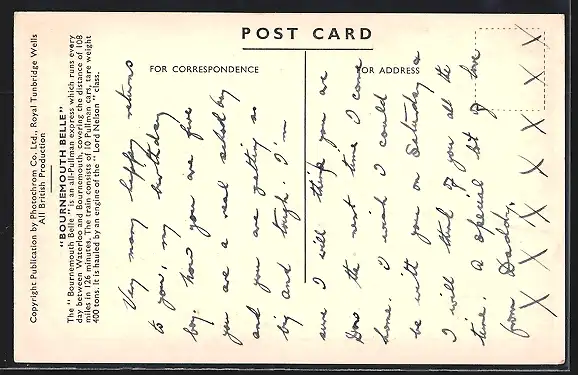 POST CARD
FOR CORRESPONDENCE
FOR ADDRESS
Copyright Publication by Photochrom Co. Ltd., Royal Tunbridge Wells
All British Production
"BOURNEMOUTH BELLE"
The "Bournemouth Belle" is an all-Pullman express which runs every
day between Waterloo and Bournemouth, covering the distance of 108
miles in 126 minutes. The train consists of 10 Pullman cars, tare weight
400 tons. It is hauled by an engine of the "Lord Nelson" class.
Very many happy returns
to you, my birthday
boy. Now you are five
you are a real school boy
and you are getting so
big and tough. I'm
sure I will think you are
the next time I come
home. I wish I could
be with you on Saturday &
I will think of you all the
time. A special lot of love
from Daddy.
X X X X X X X X